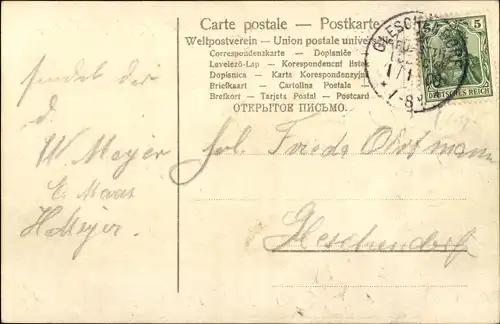 Carte postale – Postkarte
Weltpostverein – Union postale univers
Correspondenzkarte – Dopisnice
Levelező-Lap – Korespondencní lístek
Dopisnica – Karta Korespondenzyjna
Briefkaart – Cartolina Postale
Brefkort – Tarjeta Postal – Postcard
ОТКРЫТОЕ ПИСЬМО.
5
DEUTSCHES REICH
GLESCH
7-8
sendet dir
d.
W Meyer
E. Maas
H Meyer.
Frl. Frieda
Gleschendorf